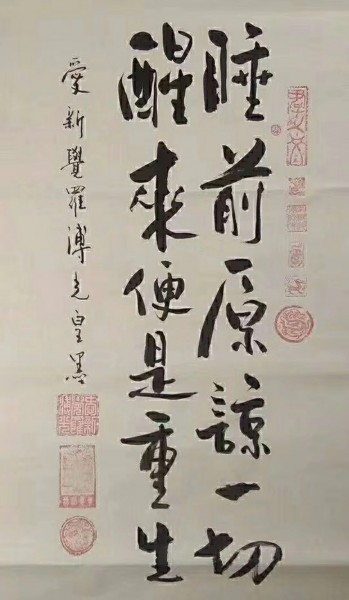 睡前原諒一切
醒來便是重生
愛新覺羅溥之皇墨